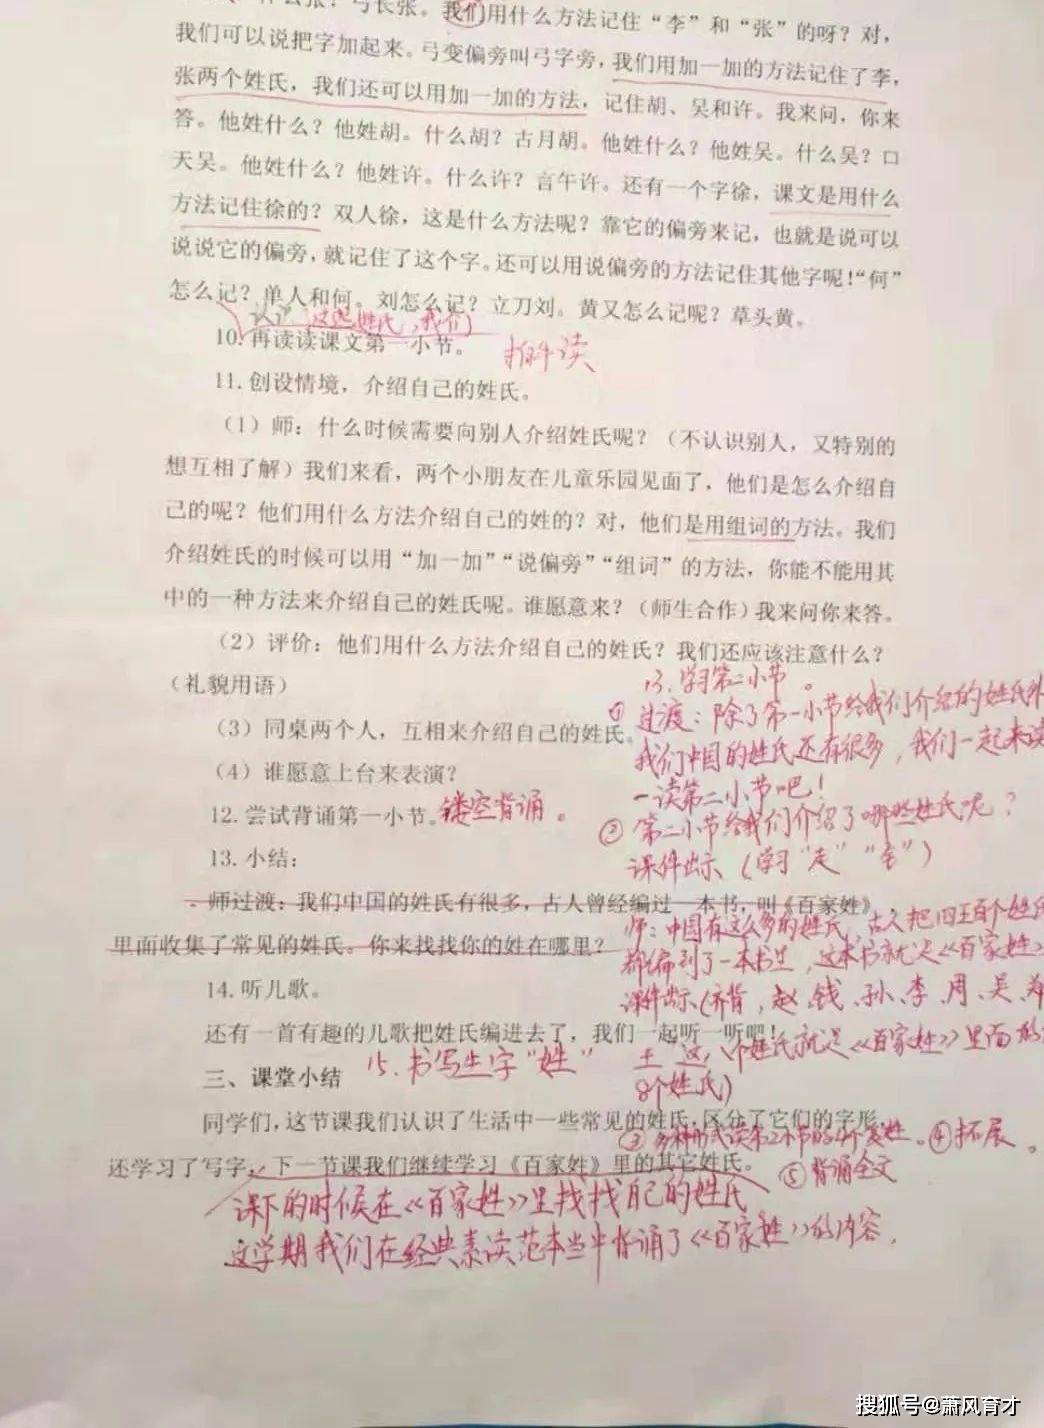 什么张？弓长张。我们用什么方法记住“李”和“张”的呀？对，
我们可以说把字加起来。弓变偏旁叫弓字旁，我们用加一加的方法记住了李，
张两个姓氏，我们还可以用加一加的方法，记住胡、吴和许。我来问，你来
答。他姓什么？他姓胡。什么胡？古月胡。他姓什么？他姓吴。什么吴？口
天吴。他姓什么？他姓许。什么许？言午许。还有一个字徐，课文是用什么
方法记住徐的？双人徐，这是什么方法呢？靠它的偏旁来记，也就是说可以
说说它的偏旁，就记住了这个字。还可以用说偏旁的方法记住其他字呢！“何”
怎么记？单人和何。刘怎么记？立刀刘。黄又怎么记呢？草头黄。
认识这些姓氏，我们
10.再读读课文第一小节。
拍手读
11.创设情境，介绍自己的姓氏。
（1）师：什么时候需要向别人介绍姓氏呢？（不认识别人，又特别的
想互相了解）我们来看，两个小朋友在儿童乐园见面了，他们是怎么介绍自
己的呢？他们用什么方法介绍自己的姓的？对，他们是用组词的方法。我们
介绍姓氏的时候可以用“加一加”“说偏旁”“组词”的方法，你能不能用其
中的一种方法来介绍自己的姓氏呢。谁愿意来？（师生合作）我来问你来答。
（2）评价：他们用什么方法介绍自己的姓氏？我们还应该注意什么？
（礼貌用语）
（3）同桌两个人，互相来介绍自己的姓氏。
（4）谁愿意上台来表演？
12.尝试背诵第一小节。镂空背诵。
13.小结：
师过渡：我们中国的姓氏有很多，古人曾经编过一本书，叫《百家姓》
里面收集了常见的姓氏。你来找找你的姓在哪里？
14.听儿歌。
还有一首有趣的儿歌把姓氏编进去了，我们一起听一听吧！
15.书写生字“姓”
三、课堂小结
同学们，这节课我们认识了生活中一些常见的姓氏，区分了它们的字形，
还学习了写字，下一节课我们继续学习《百家姓》里的其它姓氏。
课下的时候在《百家姓》里找找自己的姓氏
这学期我们在经典素读范本当中背诵了《百家姓》的内容，
13.学习第二小节。
① 过渡：除了第一小节给我们介绍的姓氏外
我们中国的姓氏还有很多，我们一起来读
一读第二小节吧！
② 第二小节给我们介绍了哪些姓氏呢？
课件出示（学习“走”“金”）
师：中国有这么多的姓氏，古人把四五百个姓氏
都编到了一本书里，这本书就是《百家姓》
课件出示（齐背，赵、钱、孙、李、周、吴、郑
王 这八个姓氏就是《百家姓》里面的
8个姓氏）
③多种形式读第2小节的4个复姓。④拓展。
⑤背诵全文
搜狐号@萧风育才